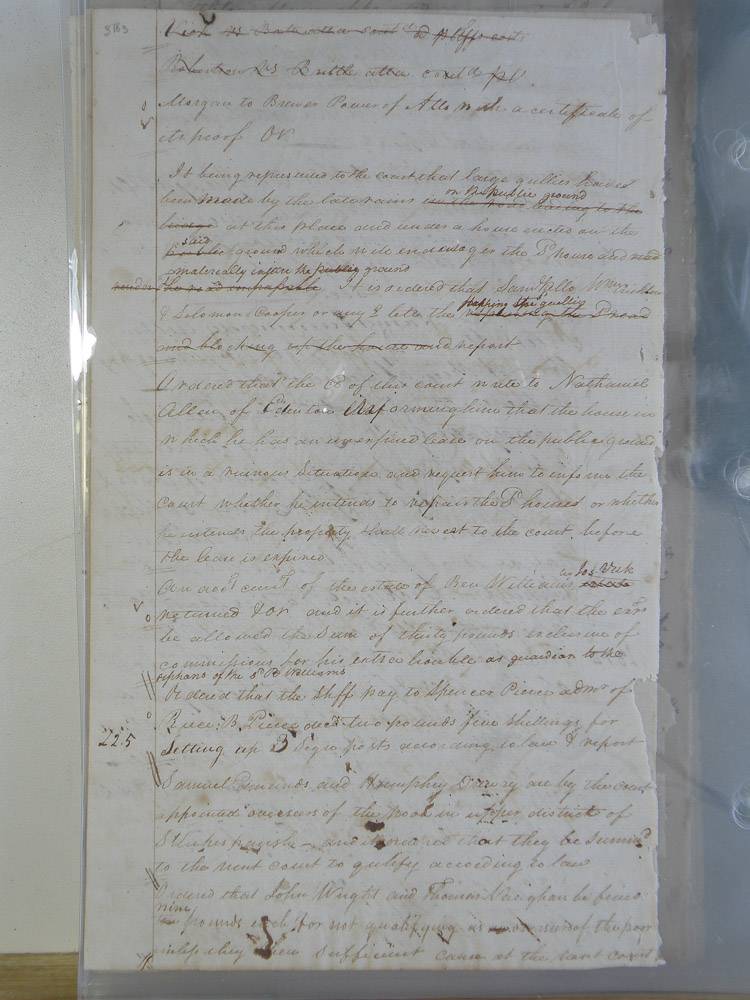 5183
Morgan to Brewer Power of Atto with a certificate of
its proof OR
It being represented to the court that large gullies have
been made by the late rains in the road leading to the
on the public ground
bridge at this place and under a house erected on the
said
public ground which will endanger the sd house and
materially injure the public ground
render the road impassable It is ordered that Saml Kello Wm
& Solomon Cooper or any 2 let the
stopping the gulley
repairing of the sd road
and blocking up the house and report
Ordered that the Ck of this court write to Nathaniel
Allen of Edenton informing him that the house in
which he has an unexpired lease on the public ground
is in a ruinous situation and request him to inform the
court whether he intends to repair the sd houses or whether
he intends the property shall revest to the court before
the lease is expired
An acct curt of the estate of Ben Williams
returned & OR and it is further ordered that the exr
be allowed the sum of thirty pounds inclusive of
commissions for his extra trouble as guardian to the
orphans of the sd B Williams
Ordered that the Shff pay to Spencer Pierce admr of
Rice B. Pierce decd two pounds five shillings for
2.2.5
setting up 3 Sign posts according to law & report
Samuel Edmunds and Humphrey Drewry are by the court
appointed overseers of the poor in upper district of
St Lukes parish and ordered that they be summd
to the next court to qulify according to law
Ordered that John Wright and Thomas Vaughan be fined
nine
pounds each for not qualifying as overseers of the poor
unless they shew sufficient cause at the next court